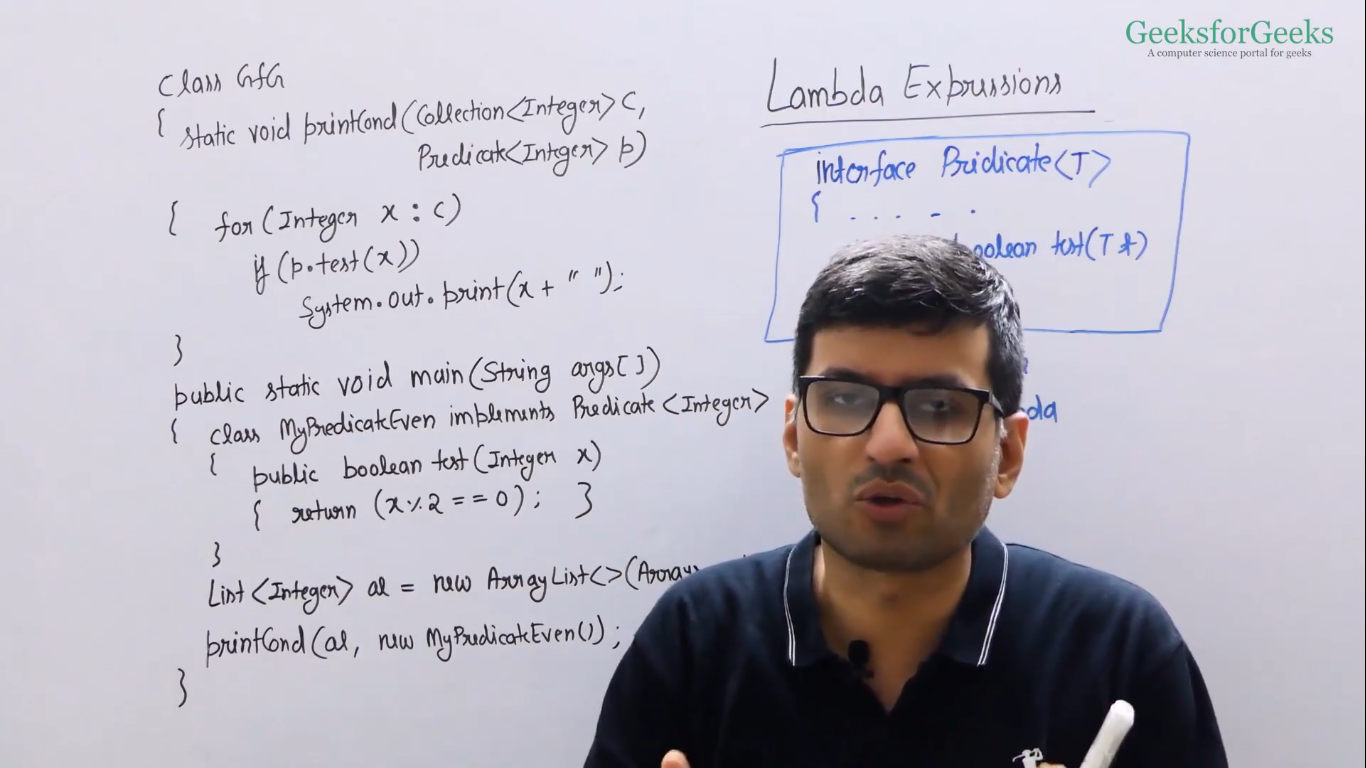 GeeksforGeeks
A computer science portal for geeks
Class GfG
{ static void printCond(Collection<Integer> C,
Predicate<Integer> p)
{ for(Integer x : c)
if(p.test(x))
System.out.print(x + " ");
}
public static void main(String args[])
{ class MyPredicateEven implements Predicate<Integer>
{ public boolean test(Integer x)
{ return (x%2 == 0); }
}
List<Integer> al = new ArrayList<>(Arrays
printCond(al, new MyPredicateEven());
}
Lambda Expressions
interface Pridicate<T>
{ . . . - .
boolean test(T t)